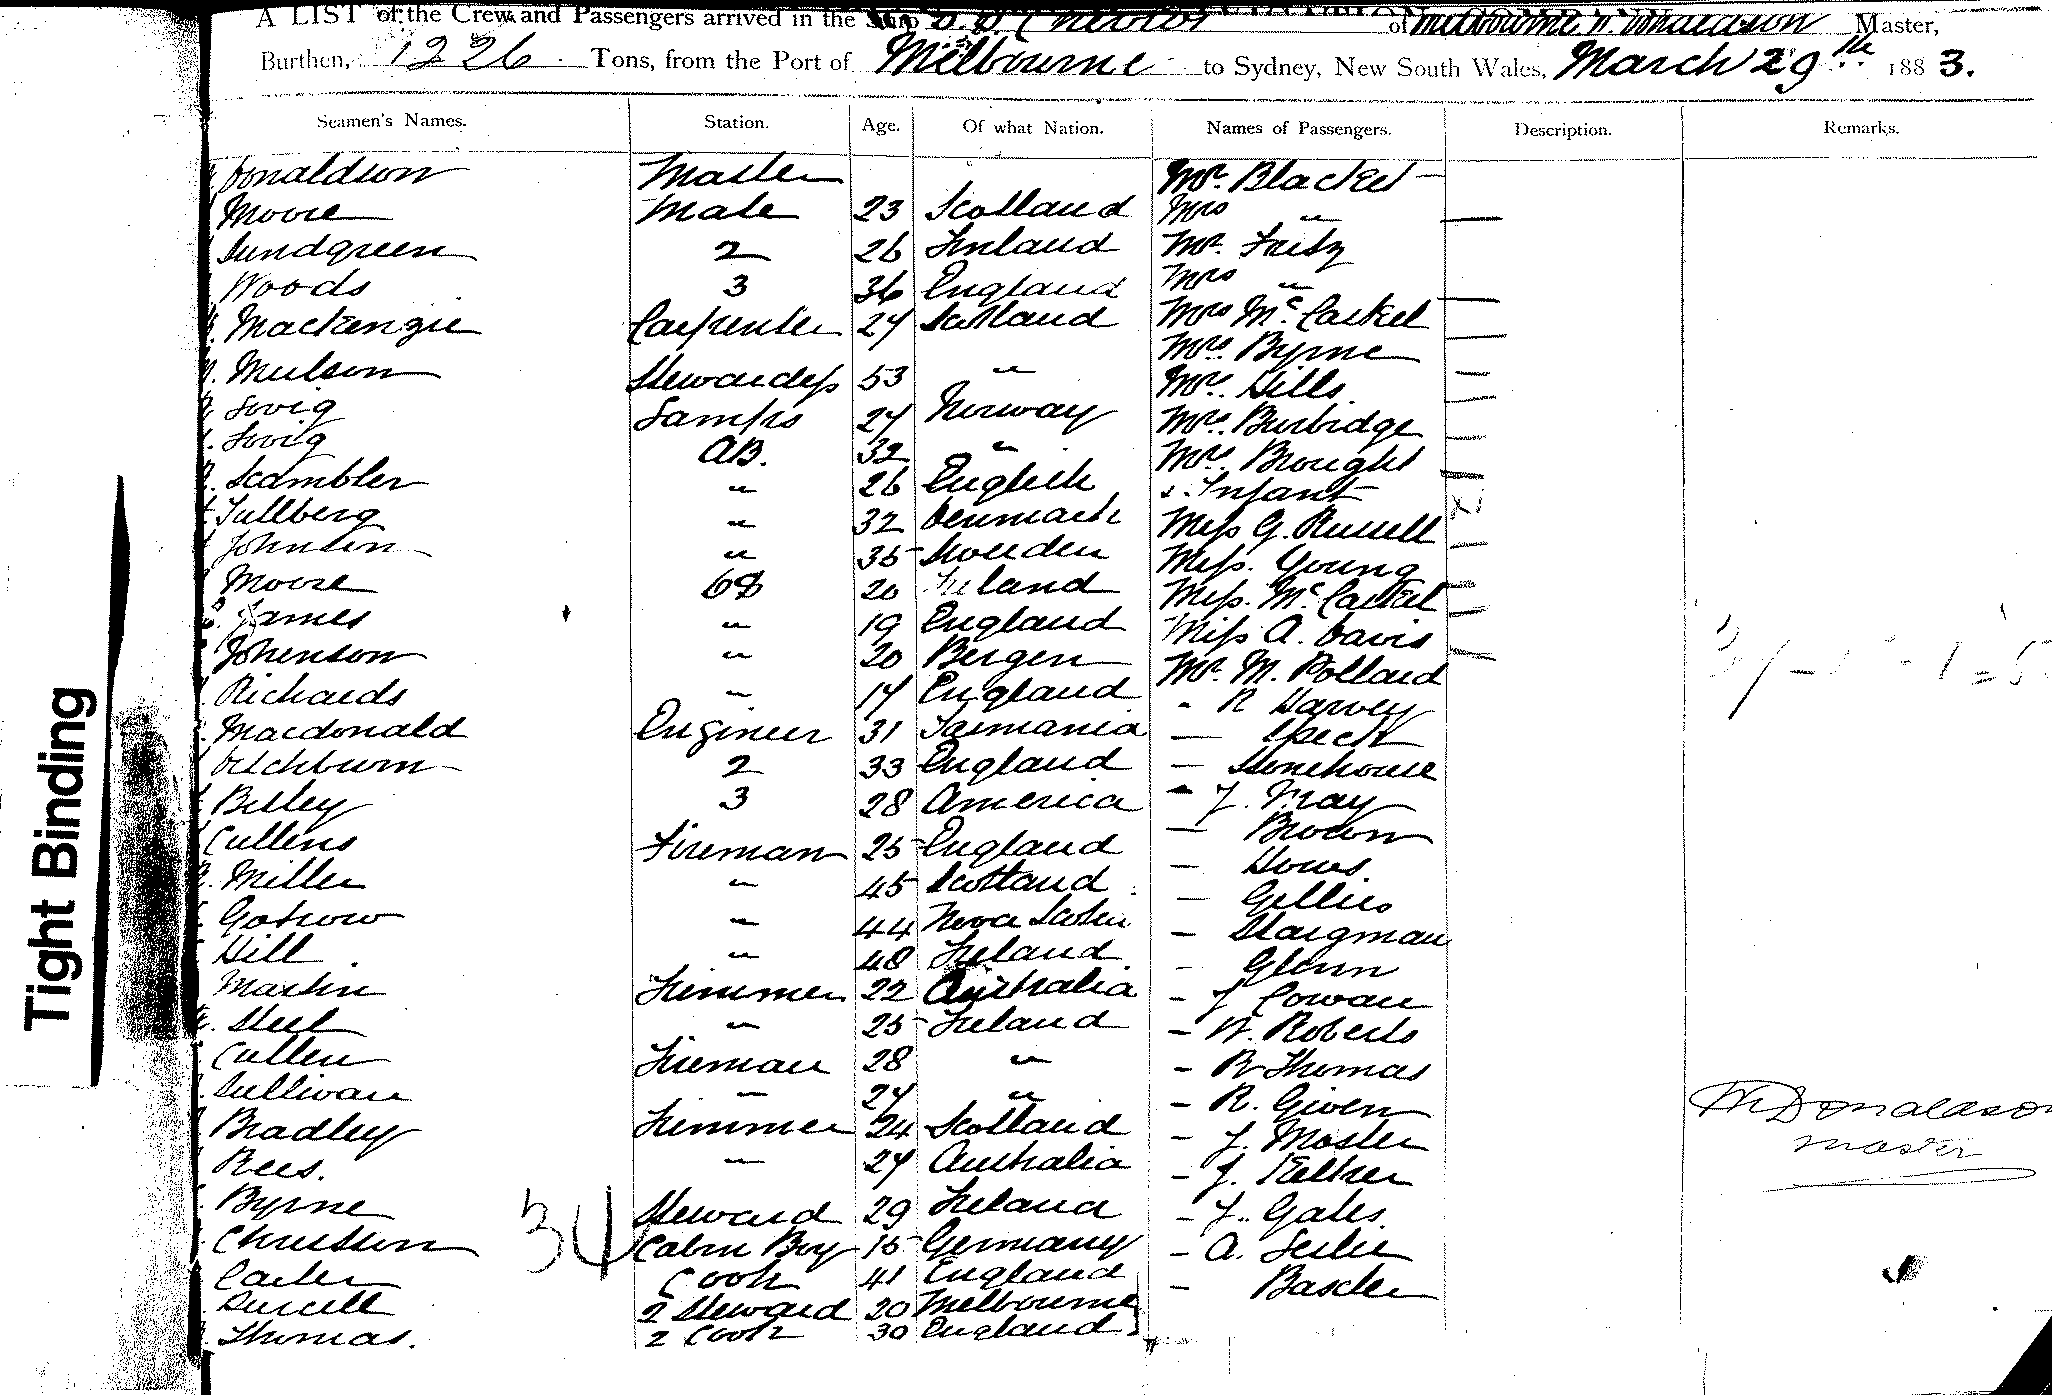 A LIST of the Crew and Passengers arrived in the Ship S.S. Cheviot of Melbourne W. Donaldson Master,
Burthen, 1226 Tons, from the Port of Melbourne to Sydney, New South Wales, March 29th 1883.
Seamen's Names. Station. Age. Of what Nation. Names of Passengers. Description. Remarks.
Donaldson Master Mr. Blacket
Moore Mate 23 Scotland Mrs "
Sundgreen 2 26 Finland Mr. Fritz
Woods 3 36 England Mrs "
Mackenzie Carpenter 27 Scotland Mrs McCaskel
Mrs. Byrne
Mulson Stewardess 53 " Mrs. Hills.
Sovig Lamps 27 Norway Mrs. Burbidge
Sovig AB. 32 " Mrs. Brought
Scambler " 26 English & Infant
Tullberg " 32 Denmark Miss G. Russell
Johnson " 35 Sweden Miss. Young
Moore OS 20 Ireland Miss. McCaskel
James " 19 England Miss A. Davis
Johenson " 20 Bergen Mr. M. Polland
Richards " 17 England " R Harvey
Macdonald Engineer 31 Tasmania — Speck
Ditchburn 2 33 England — Stonehouse
Billey 3 28 America " J. May
Cullens Fireman 25 England — Brown
Miller " 45 Scotland — Hows.
Gotrow " 44 Nova Scotia — Gillies
Hill " 48 Ireland — Stargman
Martin Trimmer 22 Australia - Glenn
Steel " 25 Ireland - J Cowan
Cullen Fireman 28 " - W. Roberts
Sullivan " 27 " - R Thomas
Bradley Trimmer 24 Scotland - R. Given
Rees. " 27 Australia - J. Moster
Byrne Steward 29 Ireland - J. Keltner
Christson Cabin Boy 15 Germany - J. Gates.
Carter Cook 41 England - A. Leslie
Purcell 2 Steward 20 Melbourne - Baxter
Thomas. 2 Cook 30 England
34
W Donaldson
master
Tight Binding